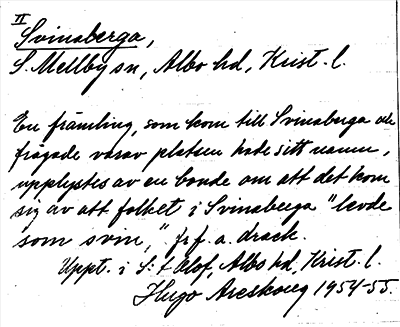 II
Svinaberga,
S. Mellby sn, Albo hd, Krist. l.
En främling, som kom till Svinaberga och
frågade varav platsen hade sitt namn,
upplystes av en bonde om att det kom
sig av att folket i Svinaberga "levde
som svin," frf. a. drack.
Uppt. i S:t Olof, Albo hd, Krist. l.
Hugo Areskoug 1954-55.